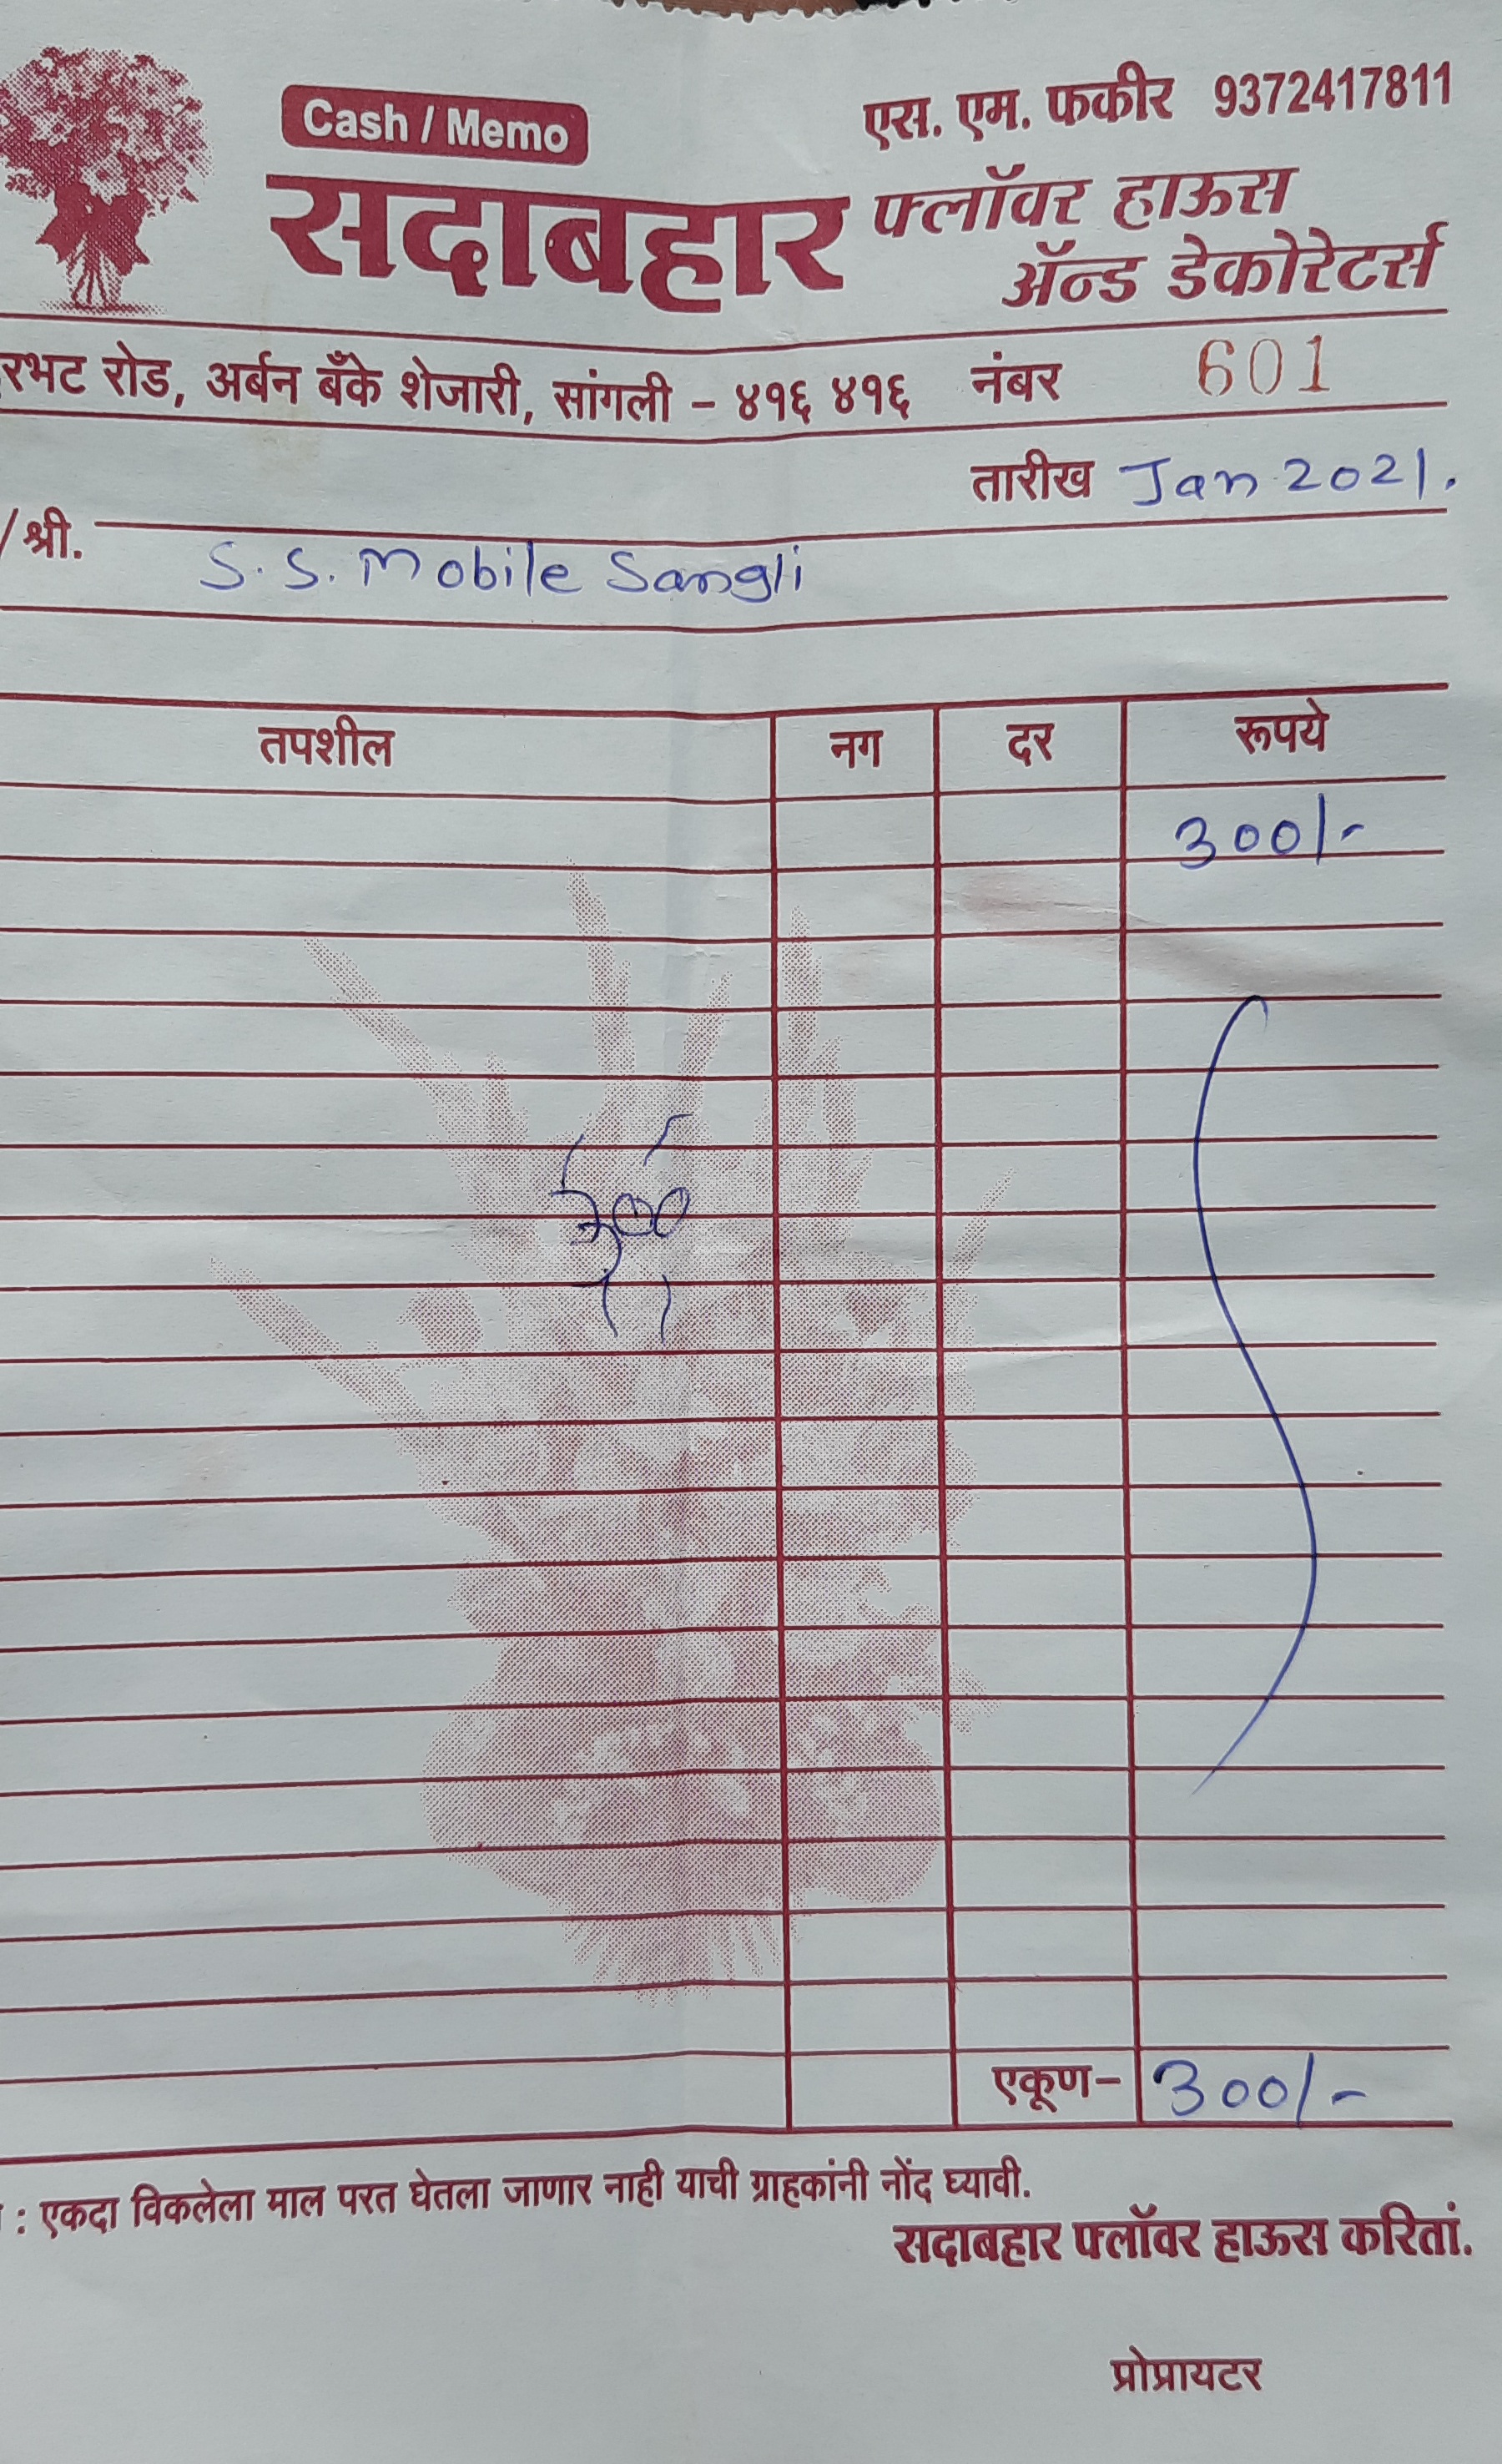 Cash / Memo
एस. एम. फकीर 9372417811
सदाबहार फ्लॉवर हाऊस
ॲन्ड डेकोरेटर्स
रभट रोड, अर्बन बँके शेजारी, सांगली - ४१६ ४१६ नंबर 601
तारीख Jan 2021.
/श्री. S. S. Mobile Sangli
तपशील नग दर रूपये
300/-
300
एकूण- 300/-
: एकदा विकलेला माल परत घेतला जाणार नाही याची ग्राहकांनी नोंद घ्यावी.
सदाबहार फ्लॉवर हाऊस करितां.
प्रोप्रायटर